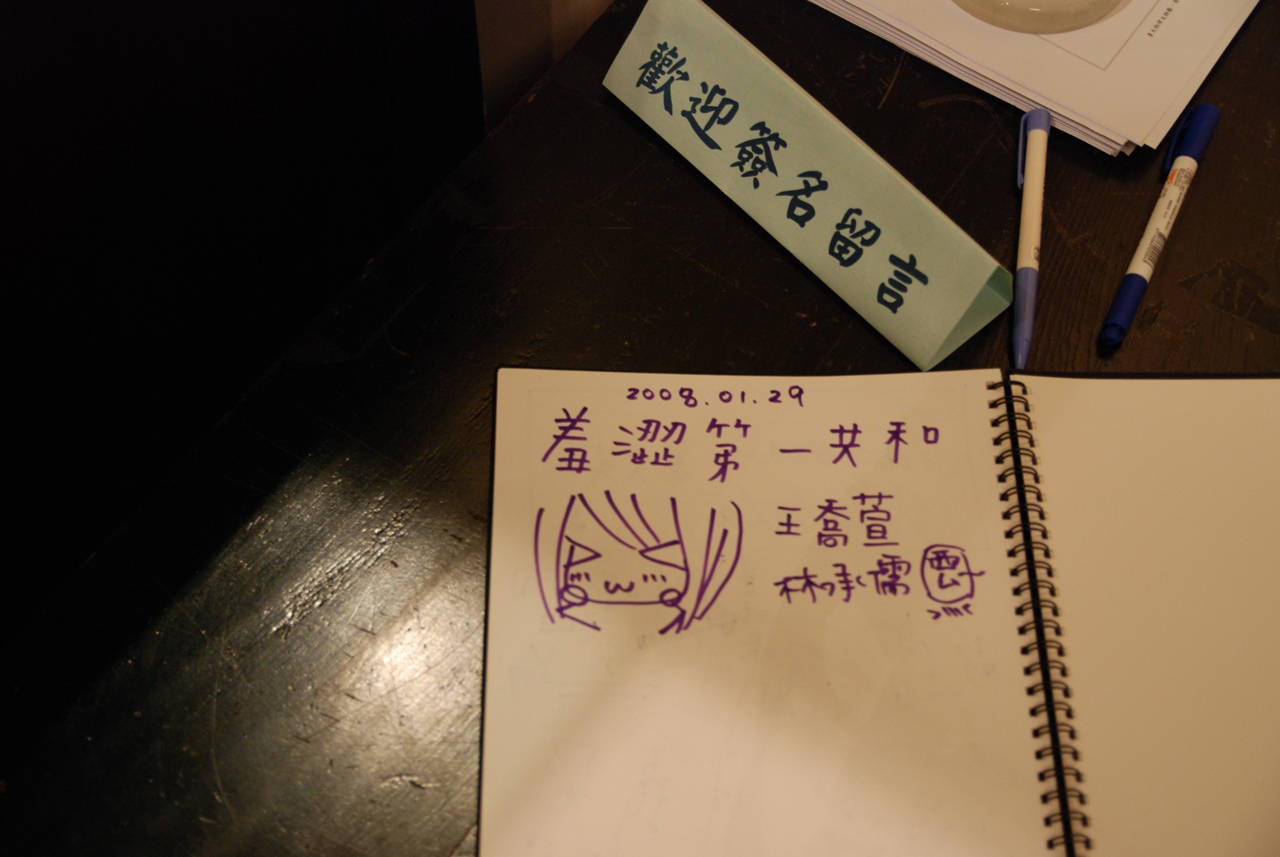 歡迎簽名留言
2008.01.29
羞澀第一共和
王喬萱
林承儒